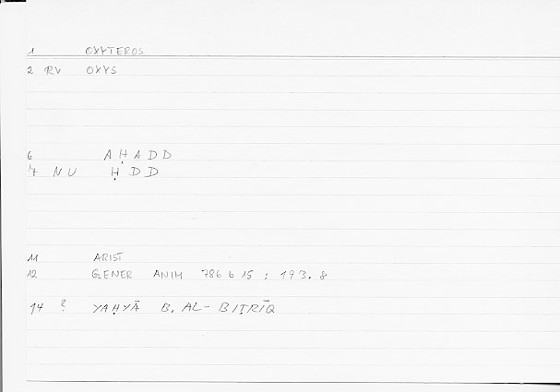 1 OXYTEROS
2 RV OXYS
6 AḤADD
7 NU ḤDD
11 ARIST
12 GENER ANIM 786 b 15 ; 193.8
14 ? YAḤYĀ B. AL-BIṬRĪQ